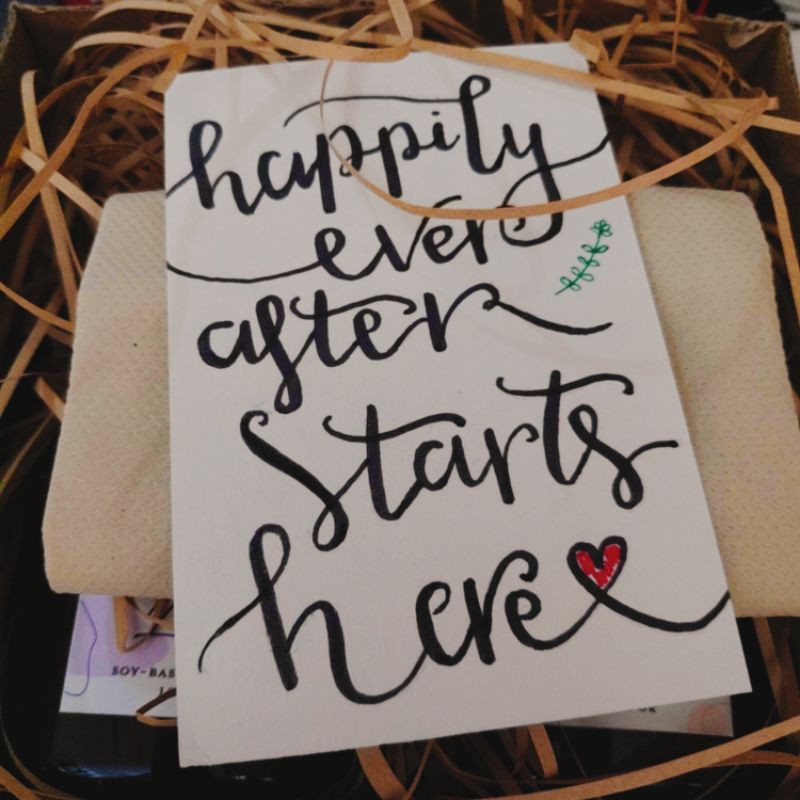 happily
ever
after
starts
here
SOY-BAS
OR